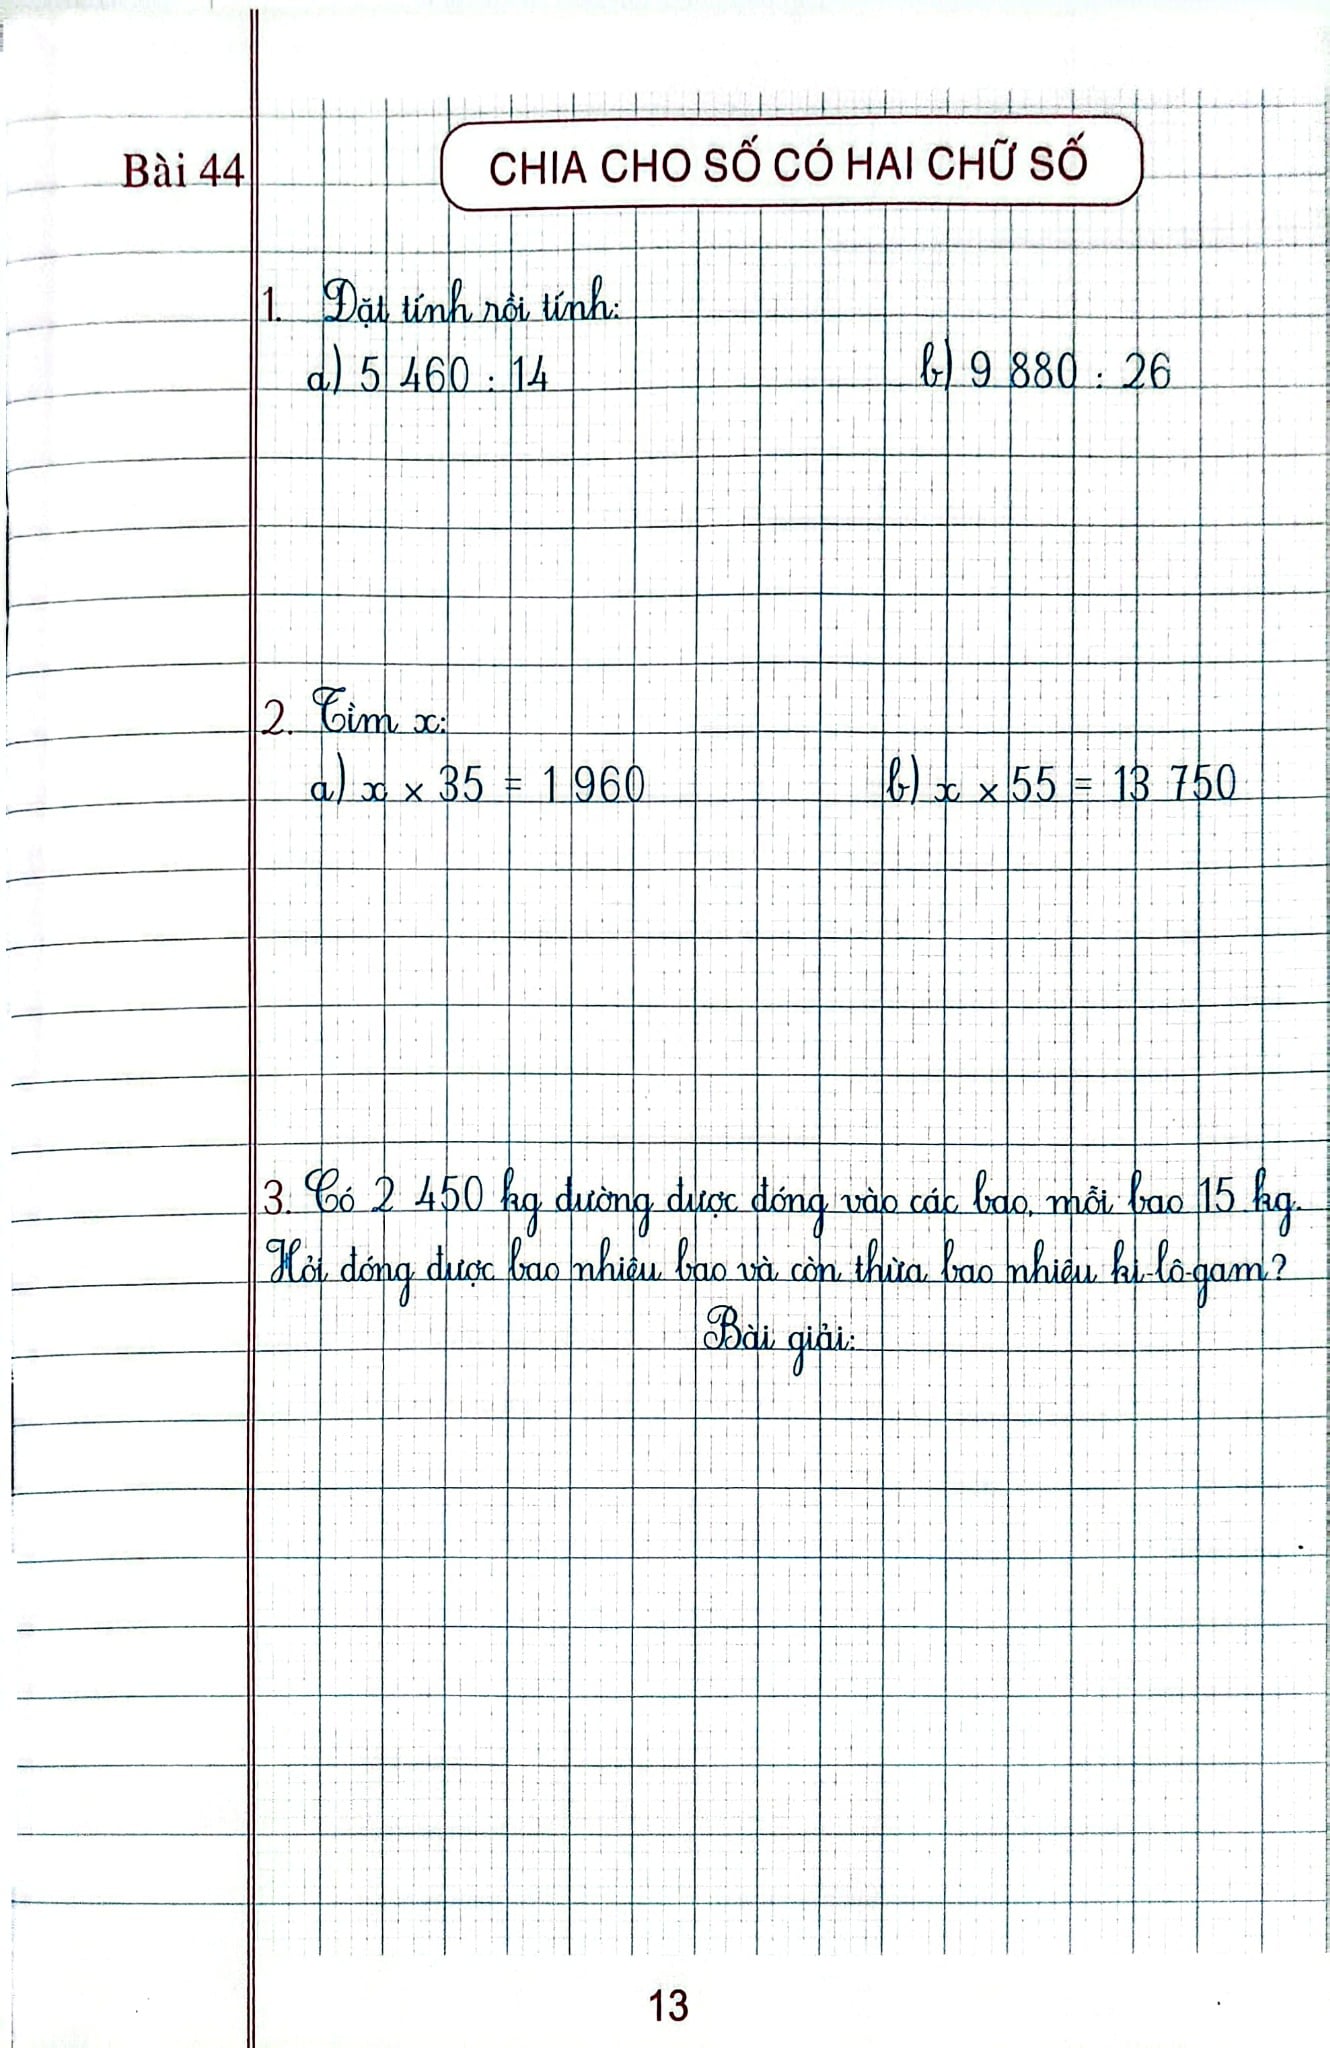 Bài 44
CHIA CHO SỐ CÓ HAI CHỮ SỐ
1. Đặt tính rồi tính:
a) 5 460 : 14 b) 9 880 : 26
2. Tìm x:
a) x × 35 = 1 960 b) x × 55 = 13 750
3. Có 2 450 kg đường được đóng vào các bao, mỗi bao 15 kg.
Hỏi đóng được bao nhiêu bao và còn thừa bao nhiêu ki-lô-gam?
Bài giải:
13